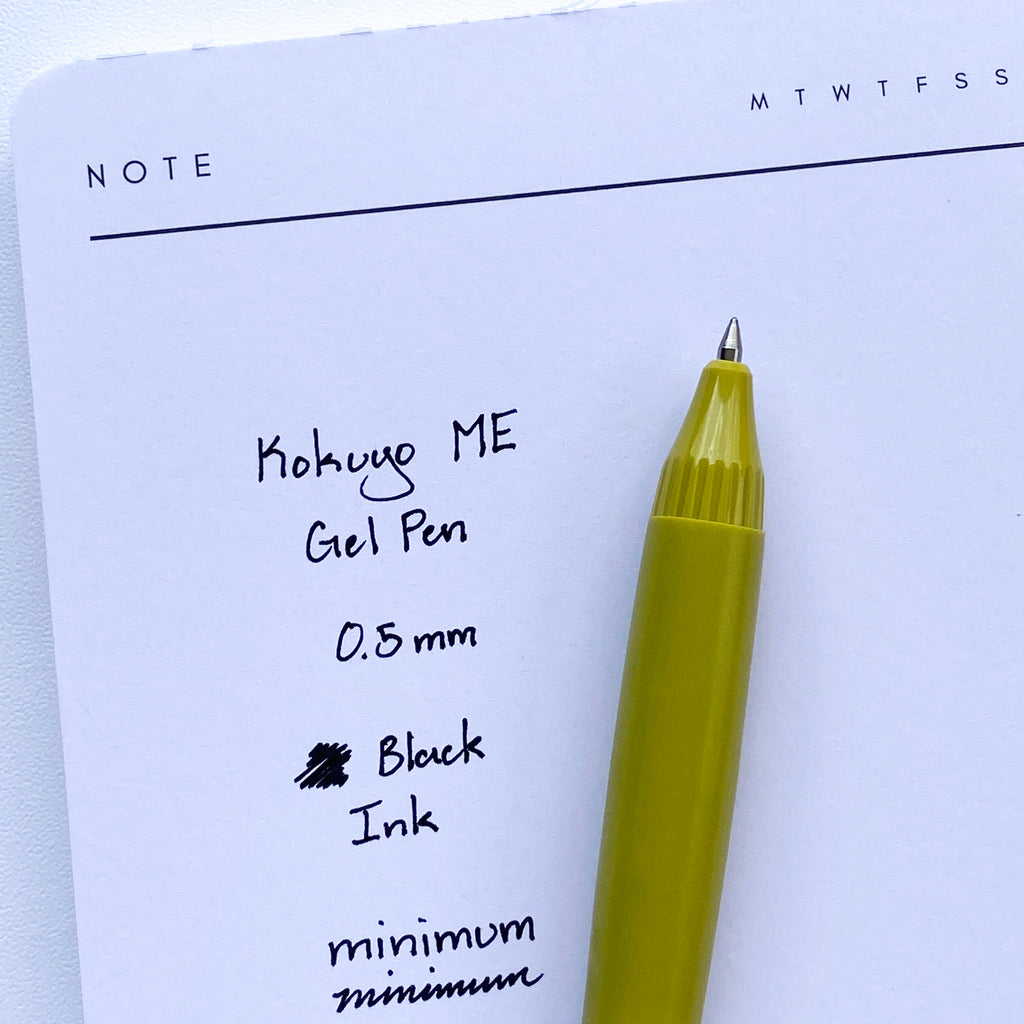 M T W T F S S
NOTE
Kokuyo ME
Gel Pen
0.5 mm
Black
Ink
minimum
minimum